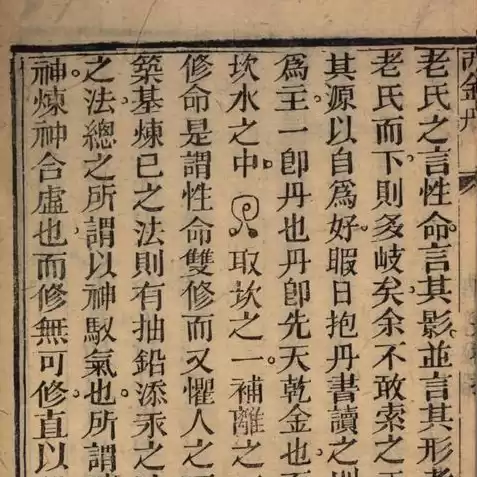 金丹
老氏之言性命。言其影。並言其形
老氏而下。則多岐矣。余不敢索之
其源。以自為好。暇日抱丹書讀之
為主。一卽丹也。丹卽先天乾金也。
坎水之中。取坎之一。補離之
修命。是謂性命雙修。而又懼人之
築基煉已之法。則有抽鉛添汞之
之法。總之所謂以神馭氣也。所謂
神煉神合虛也。而修無可修。直以